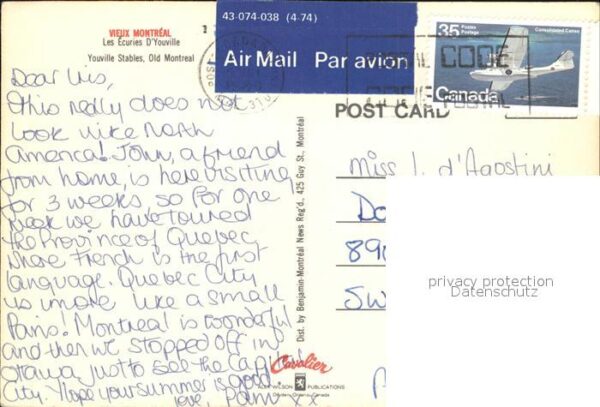 VIEUX MONTRÉAL
Les Écuries D'Youville
Youville Stables, Old Montreal
43-074-038 (4-74)
Air Mail Par avion
35 Postes Postage
Consolidated Canso
Canada
POSTAL CODE
CODE POSTAL
POST CARD
Dear Lis,
This really does not
look like North
America! John, a friend
from home, is here visiting
for 3 weeks so for one
week we have toured
the Province of Quebec,
where French is the first
language. Quebec City
is more like a small
Paris! Montreal is wonderful
and then we stopped off in
Ottawa just to see the Capital
City. Hope your summer is good.
love, Pam xx
Dist. by Benjamin-Montréal News Reg'd., 425 Guy St., Montréal
Miss L. d'Agostini
890
SW
privacy protection
Datenschutz
Cavalier
ALEX WILSON PUBLICATIONS
Dryden, Ontario, Canada